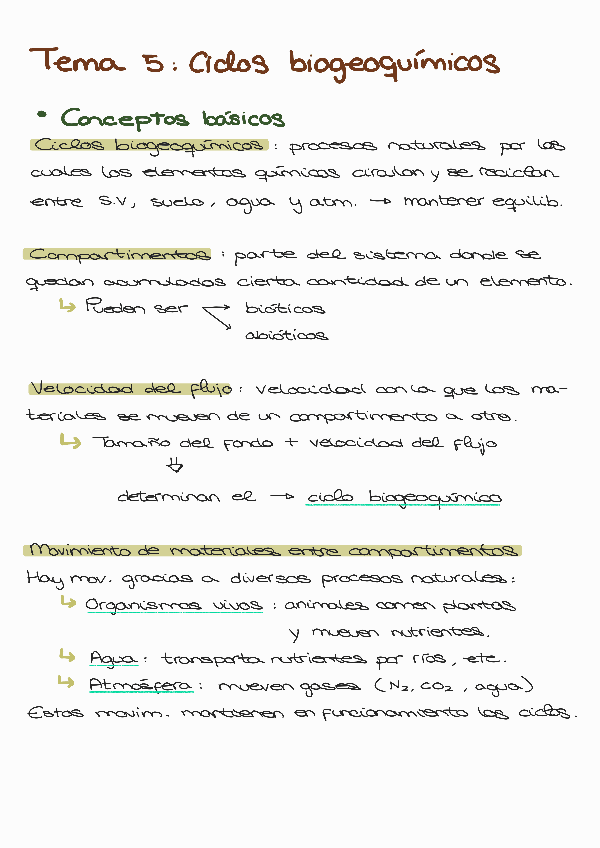 Tema 5: Ciclos biogeoquímicos
• Conceptos básicos
Ciclos biogeoquímicos: procesos naturales por los
cuales los elementos químicos circulan y se reciclan
entre S.V, suelo, agua y atm. → mantener equilib.
Compartimentos: parte del sistema donde se
quedan acumulados cierta cantidad de un elemento.
↳ Pueden ser → bióticos
↘ abióticos
Velocidad del flujo: velocidad con la que los ma-
teriales se mueven de un compartimento a otro.
↳ Tamaño del fondo + velocidad del flujo
⇓
determinan el → ciclo biogeoquímico
Movimiento de materiales entre compartimentos
Hay mov. gracias a diversos procesos naturales:
↳ Organismos vivos: animales comen plantas
y mueven nutrientes.
↳ Agua: transporta nutrientes por ríos, etc.
↳ Atmósfera: mueven gases (N₂, CO₂, agua)
Estos movim. mantienen en funcionamiento los ciclos.